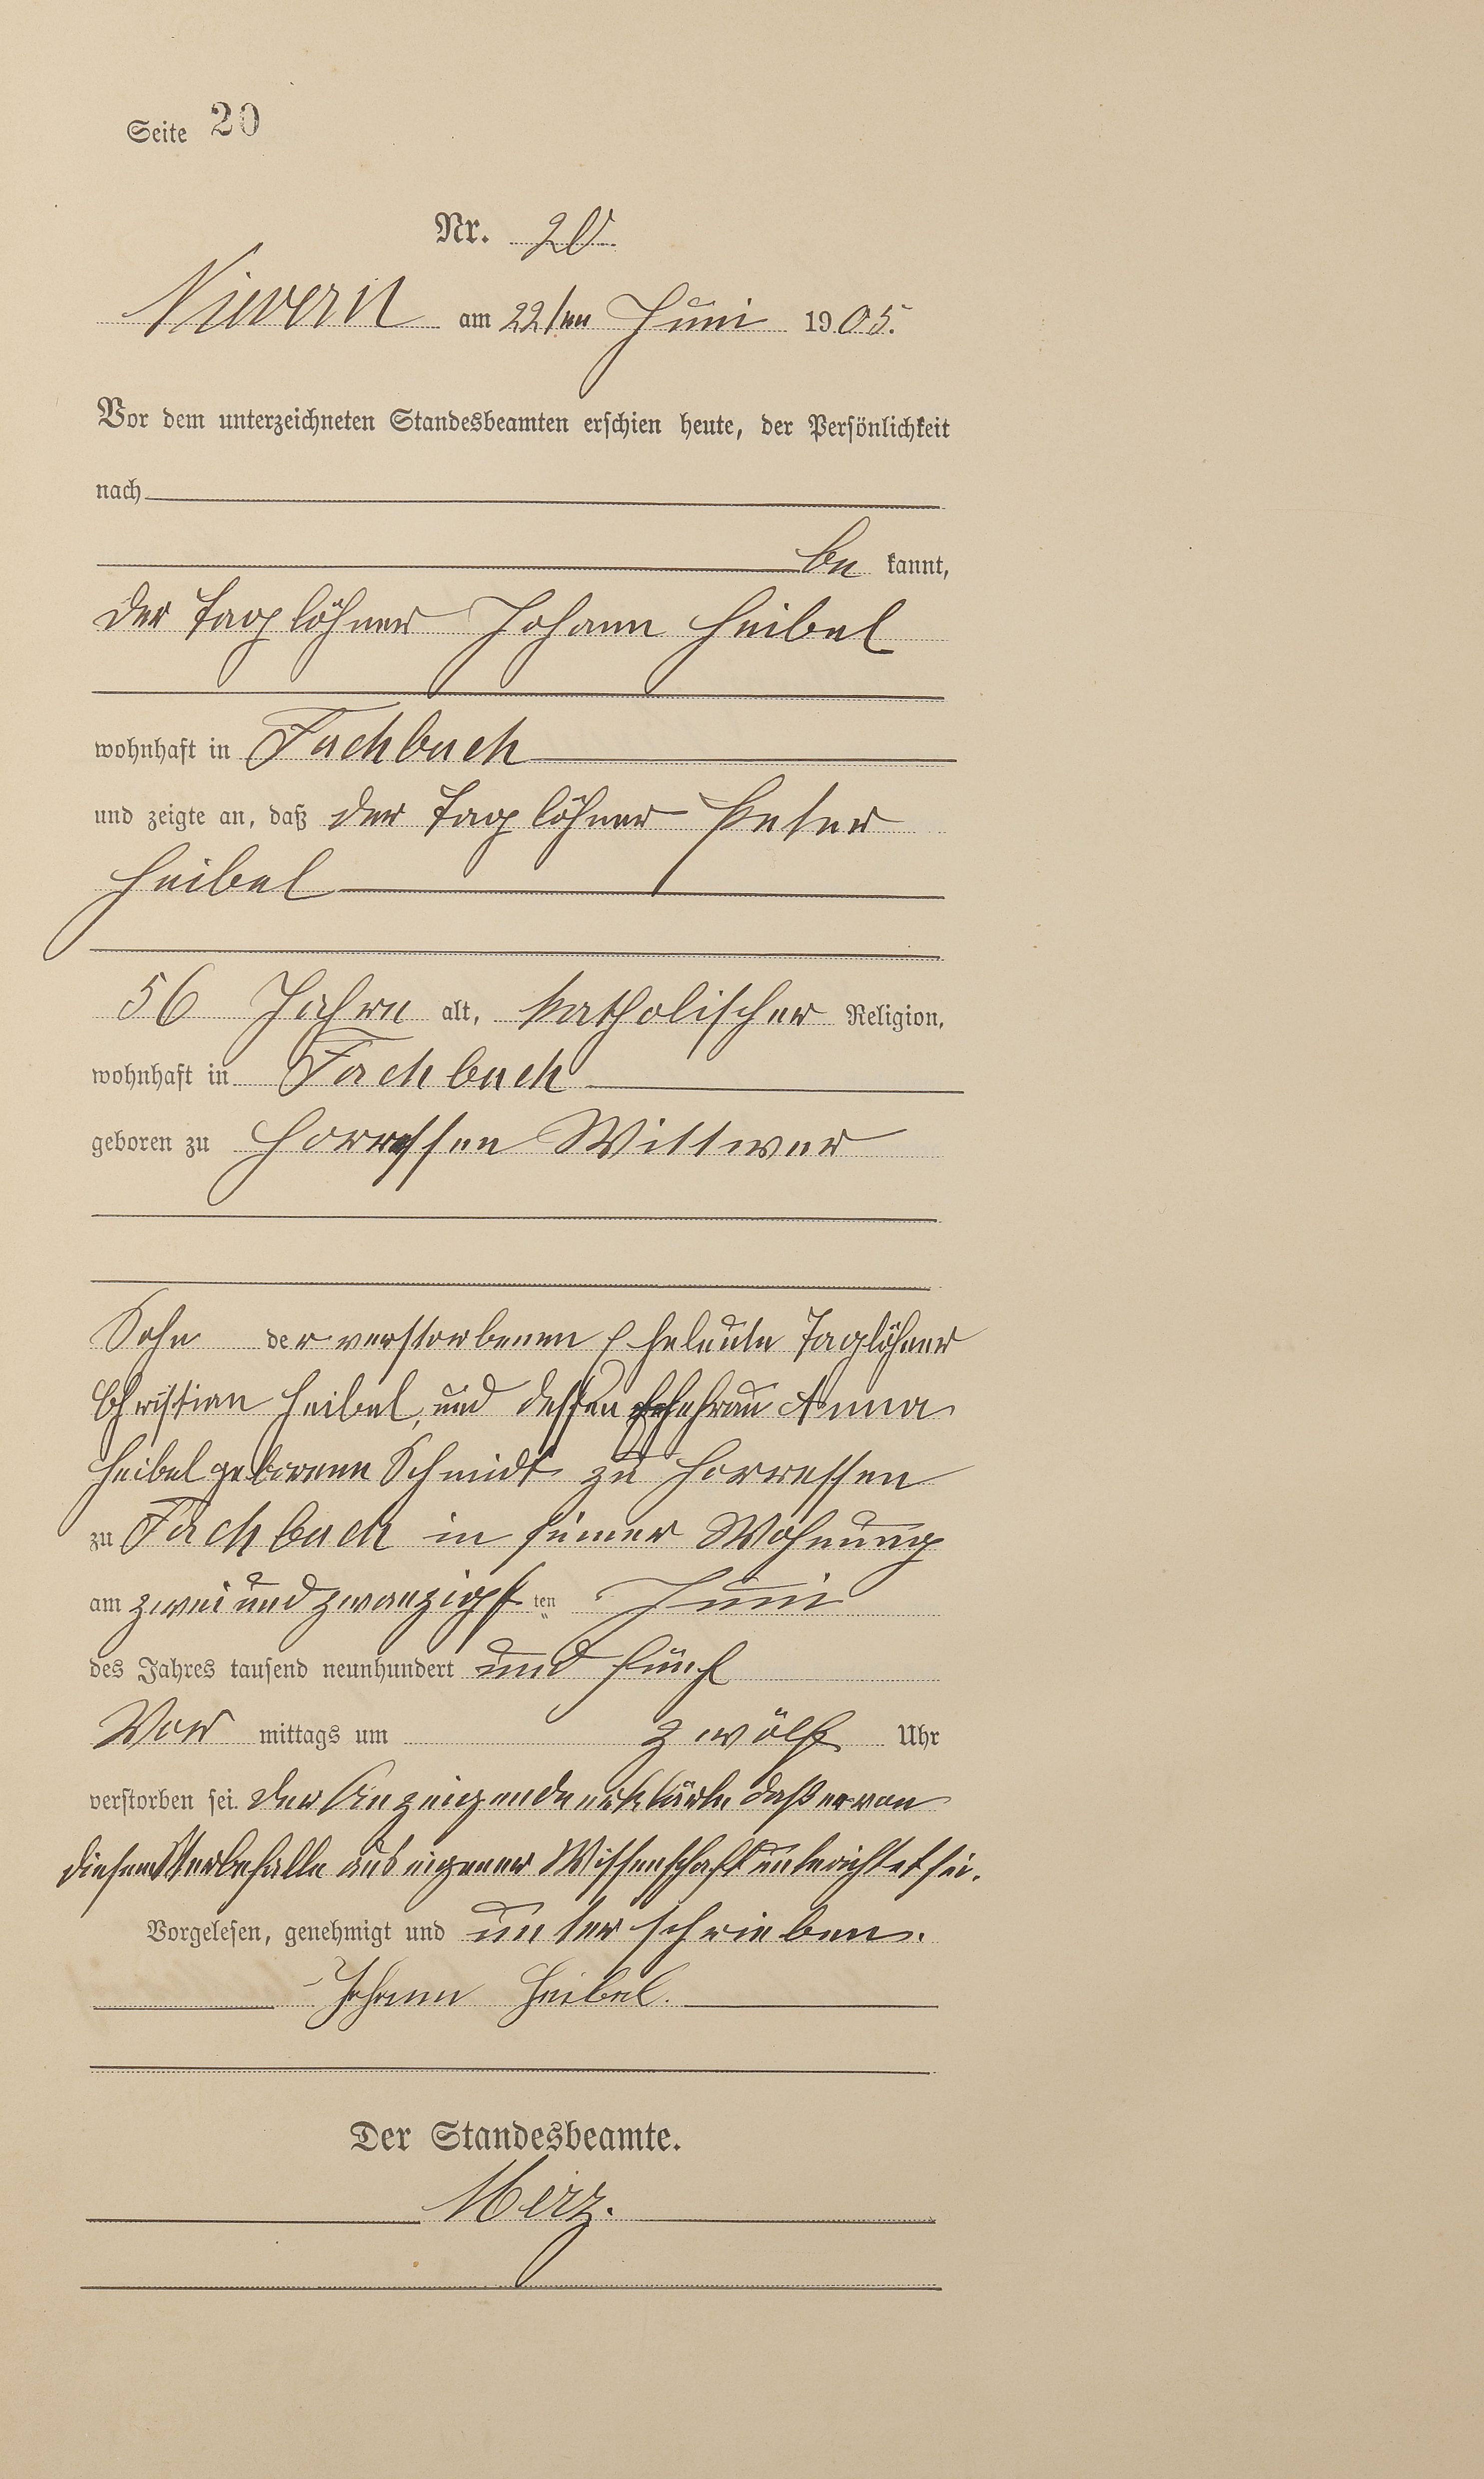 Seite 20
Nr. 20
Nievern am 22ten Juni 1905.
Vor dem unterzeichneten Standesbeamten erschien heute, der Persönlichkeit
nach
be kannt,
der Taglöhner Johann Heibel
wohnhaft in Fachbach
und zeigte an, daß der Taglöhner Peter
Heibel
56 Jahre alt, katholischer Religion,
wohnhaft in Fachbach
geboren zu Horressen Wittwer
Sohn der verstorbenen Eheleute Taglöhner
Christian Heibel, und dessen Ehefrau Anna
Heibel geborene Schmidt zu Horressen
zu Fachbach in seiner Wohnung
am zwei und zwanzigsten Juni
des Jahres tausend neunhundert und fünf
Vor mittags um zwölf Uhr
verstorben sei. Der Anzeigende erklärte daß er von
diesem Sterbefalle aus eigener Wissenschaft unterrichtet sei.
Vorgelesen, genehmigt und unterschrieben.
Johann Heibel.
Der Standesbeamte.
Merz.